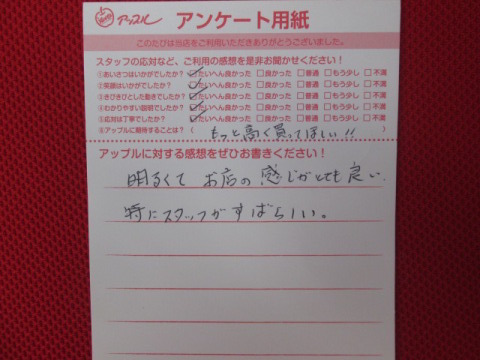 アップル アンケート用紙
このたびは当店をご利用いただきありがとうございました。
スタッフの応対など、ご利用の感想を是非お聞かせください！
①あいさつはいかがでしたか？ ☑たいへん良かった □良かった □普通 □もう少し □不満
②笑顔はいかがでしたか？ ☑たいへん良かった □良かった □普通 □もう少し □不満
③きびきびとした動きでしたか？ ☑たいへん良かった □良かった □普通 □もう少し □不満
④わかりやすい説明でしたか？ ☑たいへん良かった □良かった □普通 □もう少し □不満
⑤応対は丁寧でしたか？ ☑たいへん良かった □良かった □普通 □もう少し □不満
⑥アップルに期待することは？（ もっと高く買ってほしい!! ）
アップルに対する感想をぜひお書きください！
明るくて お店の感じがとても良い.
特にスタッフがすばらしい。